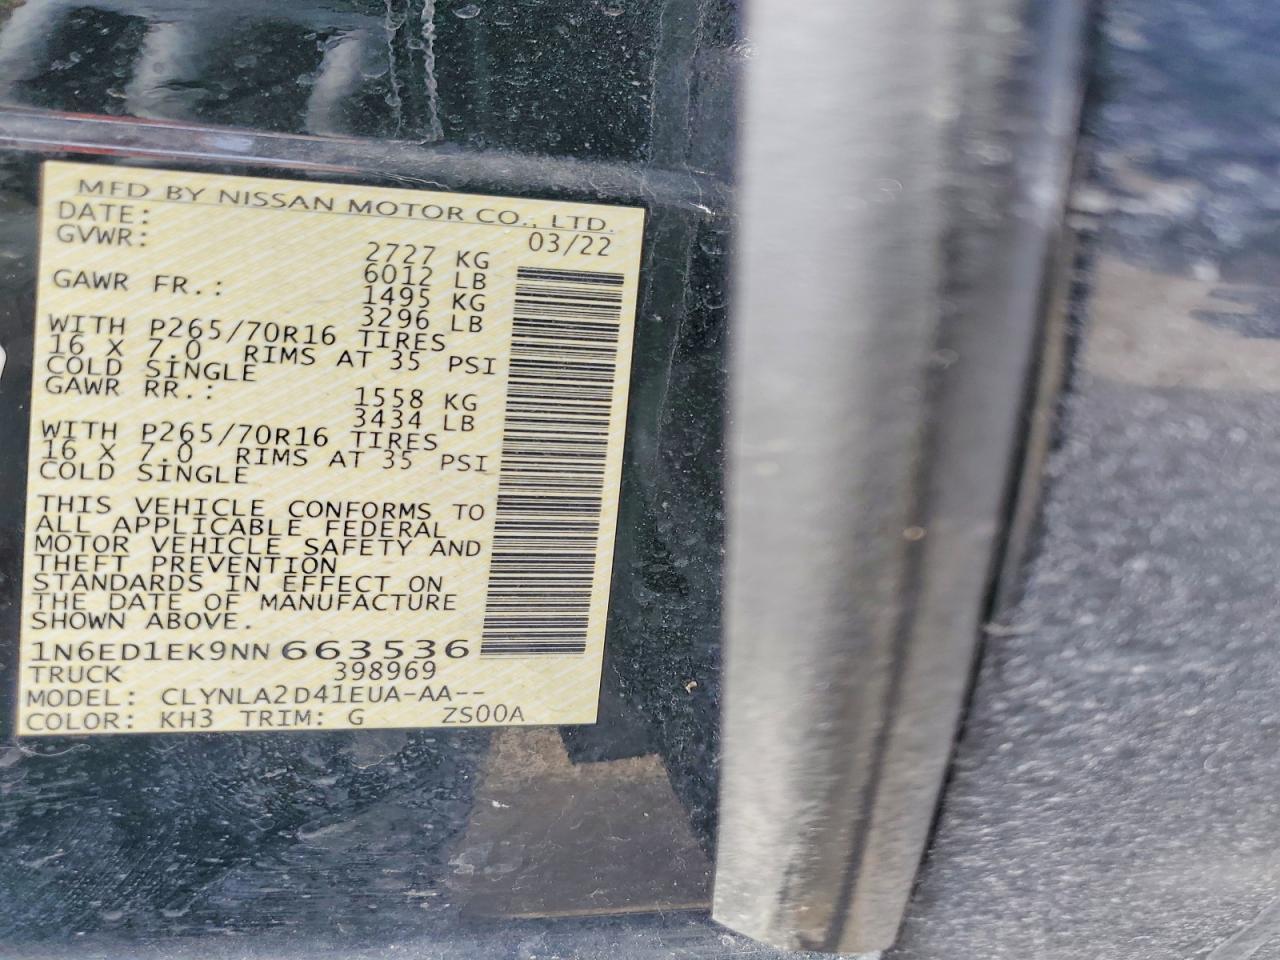 MFD BY NISSAN MOTOR CO., LTD.
DATE: 03/22
GVWR: 2727 KG
6012 LB
GAWR FR.: 1495 KG
3296 LB
WITH P265/70R16 TIRES
16 X 7.0 RIMS AT 35 PSI
COLD SINGLE
GAWR RR.: 1558 KG
3434 LB
WITH P265/70R16 TIRES
16 X 7.0 RIMS AT 35 PSI
COLD SINGLE
THIS VEHICLE CONFORMS TO
ALL APPLICABLE FEDERAL
MOTOR VEHICLE SAFETY AND
THEFT PREVENTION
STANDARDS IN EFFECT ON
THE DATE OF MANUFACTURE
SHOWN ABOVE.
1N6ED1EK9NN663536
TRUCK 398969
MODEL: CLYNLA2D41EUA-AA--
COLOR: KH3 TRIM: G ZS00A